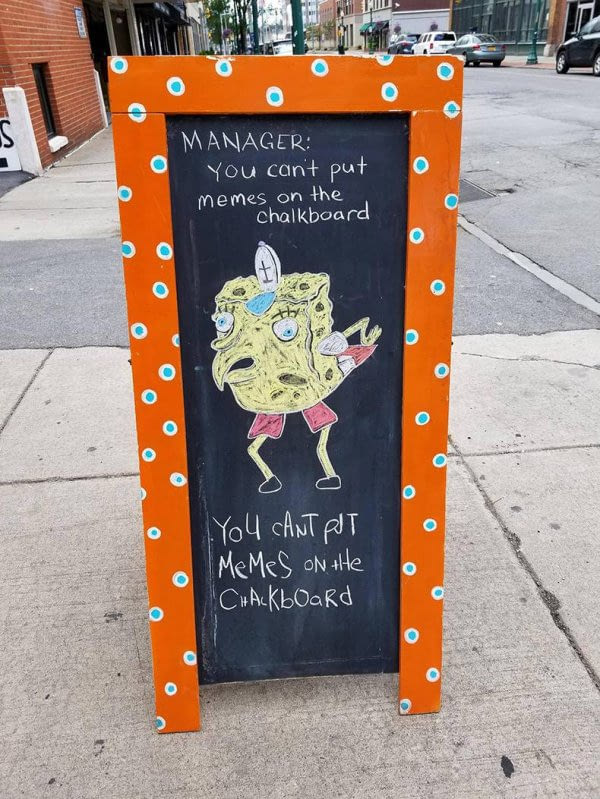 MANAGER:
You can't put
memes on the
chalkboard
YoU cANT pUT
MeMeS oN tHe
CHAcKbOaRd
S